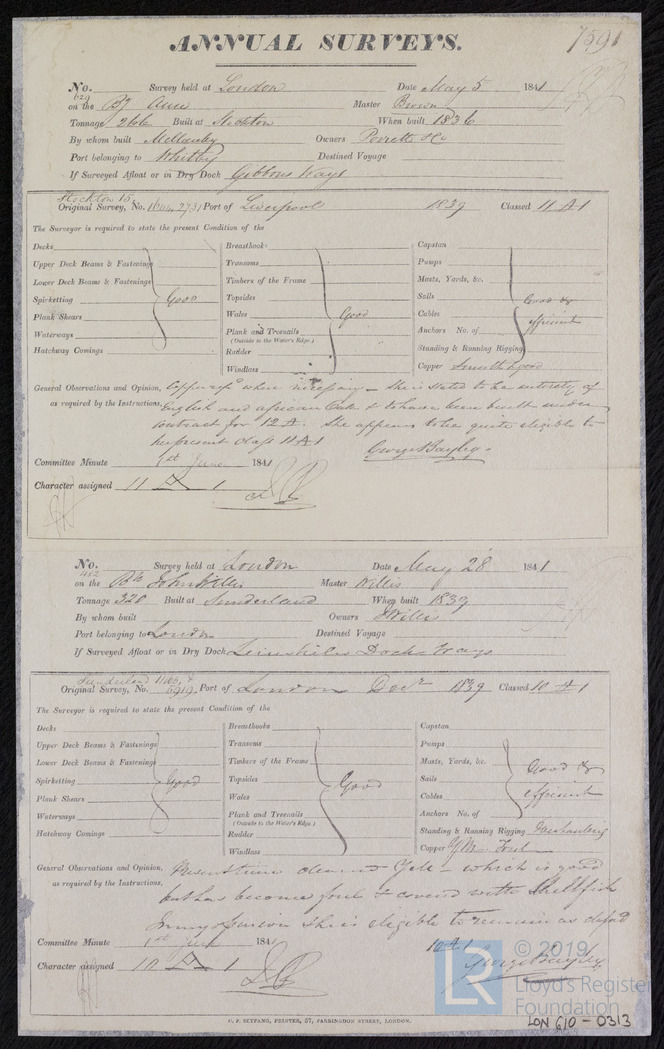 ANNUAL SURVEYS.
7591
No. 629 Survey held at London Date May 5 1841
on the Bg Anne Master Brown
Tonnage 266 Built at Stockton When built 1836
By whom built Mellanby Owners Perrett & Co
Port belonging to Whitby Destined Voyage
If Surveyed Afloat or in Dry Dock Gibbons Ways
Stockton 15
Original Survey, No. Port of Liverpool 1839 Classed 11 A 1
The Surveyor is required to state the present Condition of the
Decks Breasthooks Capstan
Upper Deck Beams & Fastenings Transoms Pumps
Lower Deck Beams & Fastenings Timbers of the Frame Masts, Yards, &c.
Spirketting Good Topsides Sails Good &
Plank Shears Wales Good Cables efficient
Waterways Plank and Treenails Anchors No. of
(Outside to the Water's Edge.)
Hatchway Comings Rudder Standing & Running Rigging
Windlass Copper good
General Observations and Opinion, Copper repd where necessary – She is stated to be entirely of
as required by the Instructions, English and African Oak & to have been built under
contract for 12 A. She appears to be quite eligible to
her present class 11 A 1
George Bayley
Committee Minute 1st June 1841
Character assigned 11 A 1
No. 462 Survey held at London Date May 28 1841
on the Bk John Willis Master Willis
Tonnage 328 Built at Sunderland When built 1839
By whom built Owners J Willis
Port belonging to London Destined Voyage
If Surveyed Afloat or in Dry Dock Limehouse Dock Ways
Sunderland
Original Survey, No. 6919 Port of London Decr 1839 Classed 10 A 1
The Surveyor is required to state the present Condition of the
Decks Breasthooks Capstan
Upper Deck Beams & Fastenings Transoms Pumps
Lower Deck Beams & Fastenings Timbers of the Frame Masts, Yards, &c. Good &
Spirketting Good Topsides Good Sails
Plank Shears Wales Cables efficient
Waterways Plank and Treenails Anchors No. of
(Outside to the Water's Edge.)
Hatchway Comings Rudder Standing & Running Rigging
Windlass Copper Y.M. Foul
General Observations and Opinion, cleaned Y. M. – which is good
as required by the Instructions, but has become foul & covered with Shellfish
In my opinion She is eligible to remain as classed
10 A 1
George Bayley
Committee Minute 1st June 1841
Character assigned 10 A 1
C. F. SEYFANG, PRINTER, 57, FARRINGDON STREET, LONDON.
LR © 2019
Lloyd's Register
Foundation
LON 610 - 0313